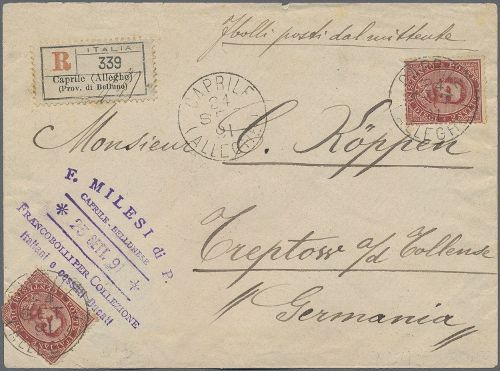 ITALIA
R
339
Caprile (Alleghe)
(Prov. di Belluno)
Ibolli posti dal mittente
CAPRILE
24
9
91
(ALLEGHE)
Monsieur C. Köppen
Treptow a/d Tollense
Germania
F. MILESI di P.
CAPRILE-BELLUNESE
* 23 SETT. 91 *
FRANCOBOLLI PER COLLEZIONE
Italiani o cessati Ducati